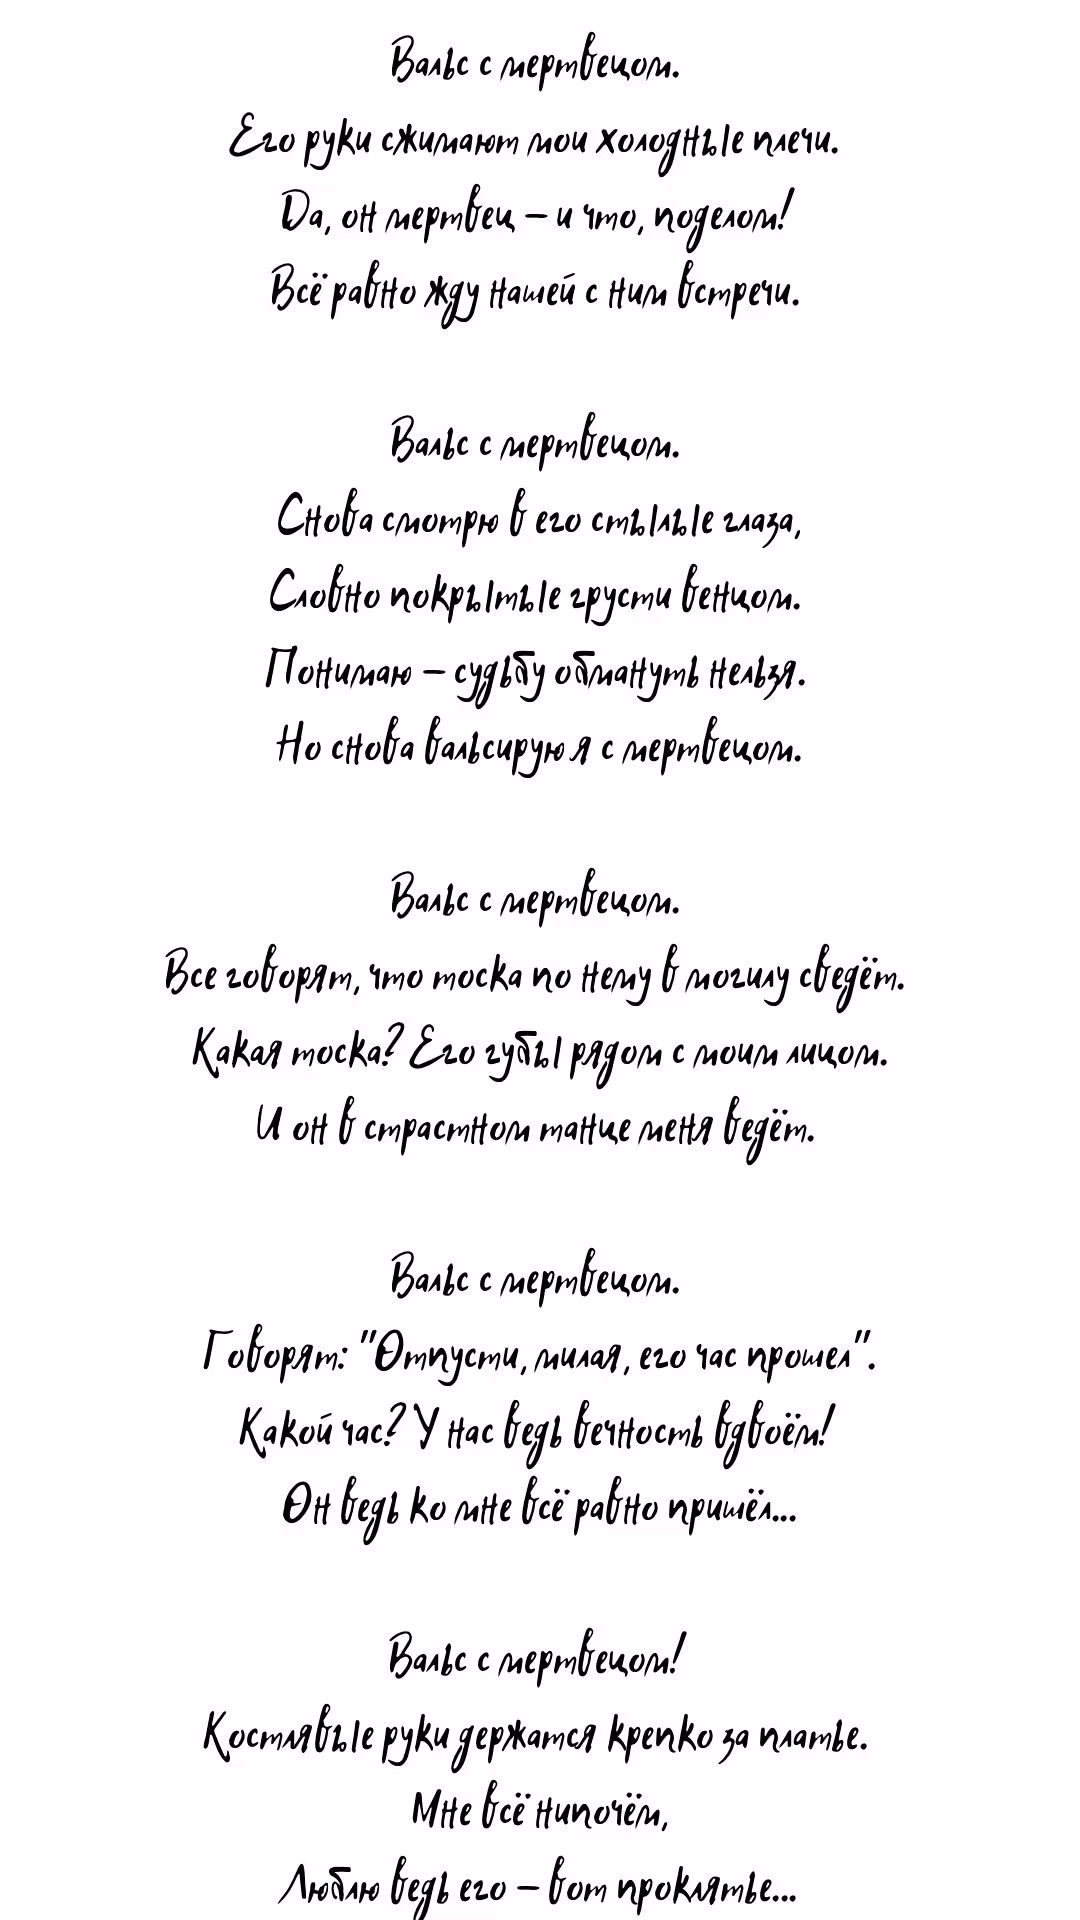 Вальс с мертвецом.
Его руки сжимают мои холодные плечи.
Да, он мертвец – и что, поделом!
Всё равно жду нашей с ним встречи.
Вальс с мертвецом.
Снова смотрю в его стылые глаза,
Словно покрытые грусти венцом.
Понимаю – судьбу обмануть нельзя.
Но снова вальсирую я с мертвецом.
Вальс с мертвецом.
Все говорят, что тоска по нему в могилу сведёт.
Какая тоска? Его губы рядом с моим лицом.
И он в страстном танце меня ведёт.
Вальс с мертвецом.
Говорят: "Отпусти, милая, его час прошел".
Какой час? У нас ведь вечность вдвоём!
Он ведь ко мне всё равно пришёл...
Вальс с мертвецом!
Костлявые руки держатся крепко за платье.
Мне всё нипочём,
Люблю ведь его – вот проклятье...